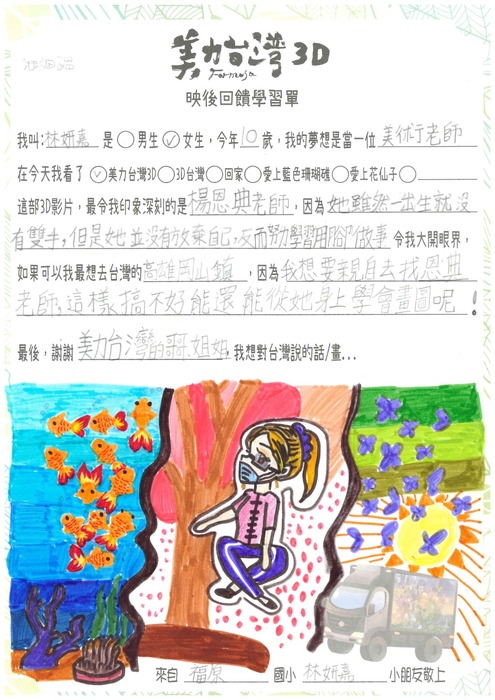 美力台灣3D
Formosa
映後回饋學習單
我叫:林妍嘉 是○男生✓女生，今年10歲，我的夢想是當一位 美術行老師
在今天我看了 ✓美力台灣3D○3D台灣○回家○愛上藍色珊瑚礁○愛上花仙子○
這部3D影片，最令我印象深刻的是楊恩典老師，因為她雖然一出生就沒
有雙手，但是她並沒有放棄自己，反而努力學習用腳做事 令我大開眼界，
如果可以我最想去台灣的高雄岡山鎮，因為我想要親自去找恩典
老師，這樣搞不好能還能從她身上學會畫圖呢！
最後，謝謝 美力台灣的哥哥姐姐 我想對台灣說的話/畫...
來自 福原 國小 林妍嘉 小朋友敬上